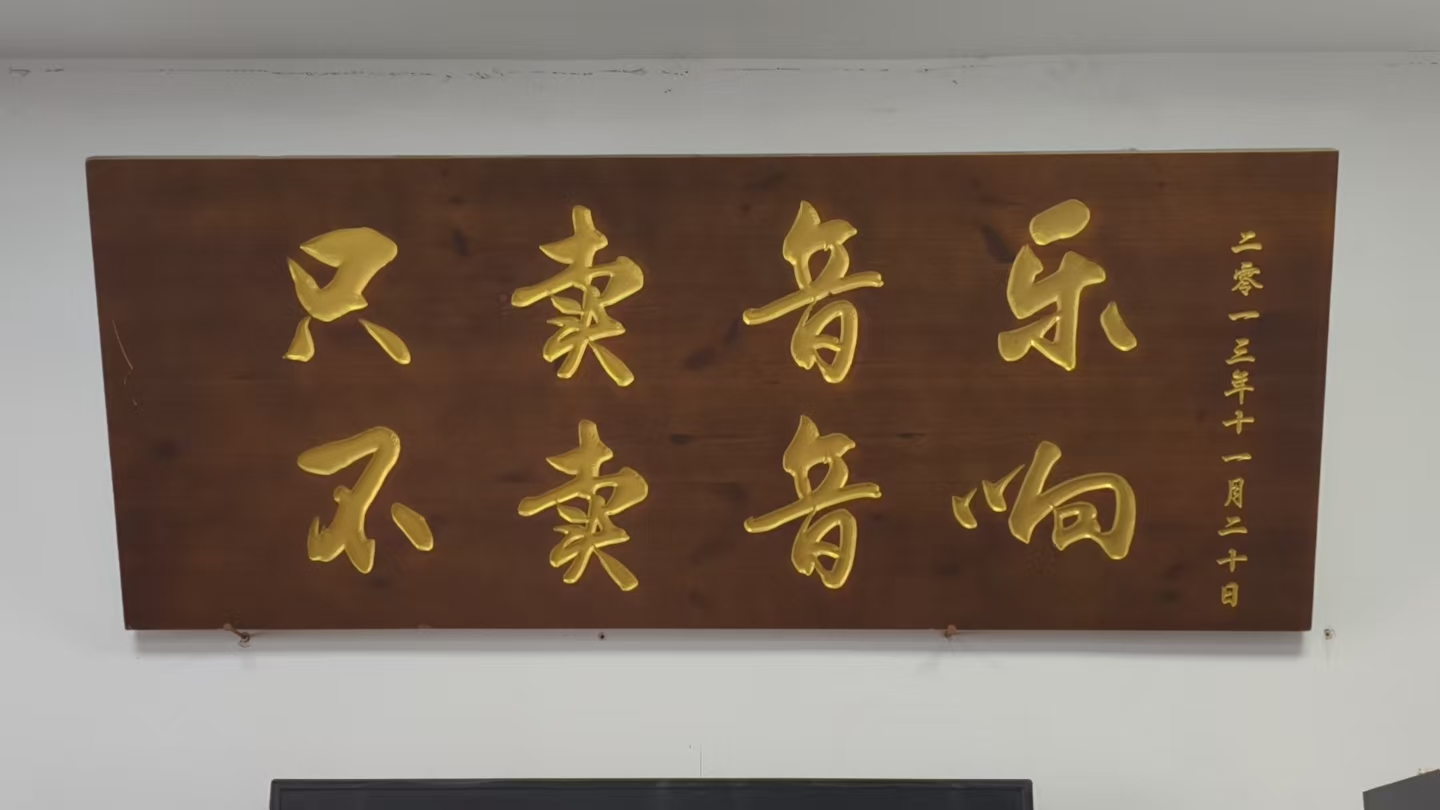 只卖音乐
不卖音响
二零一三年十一月二十日